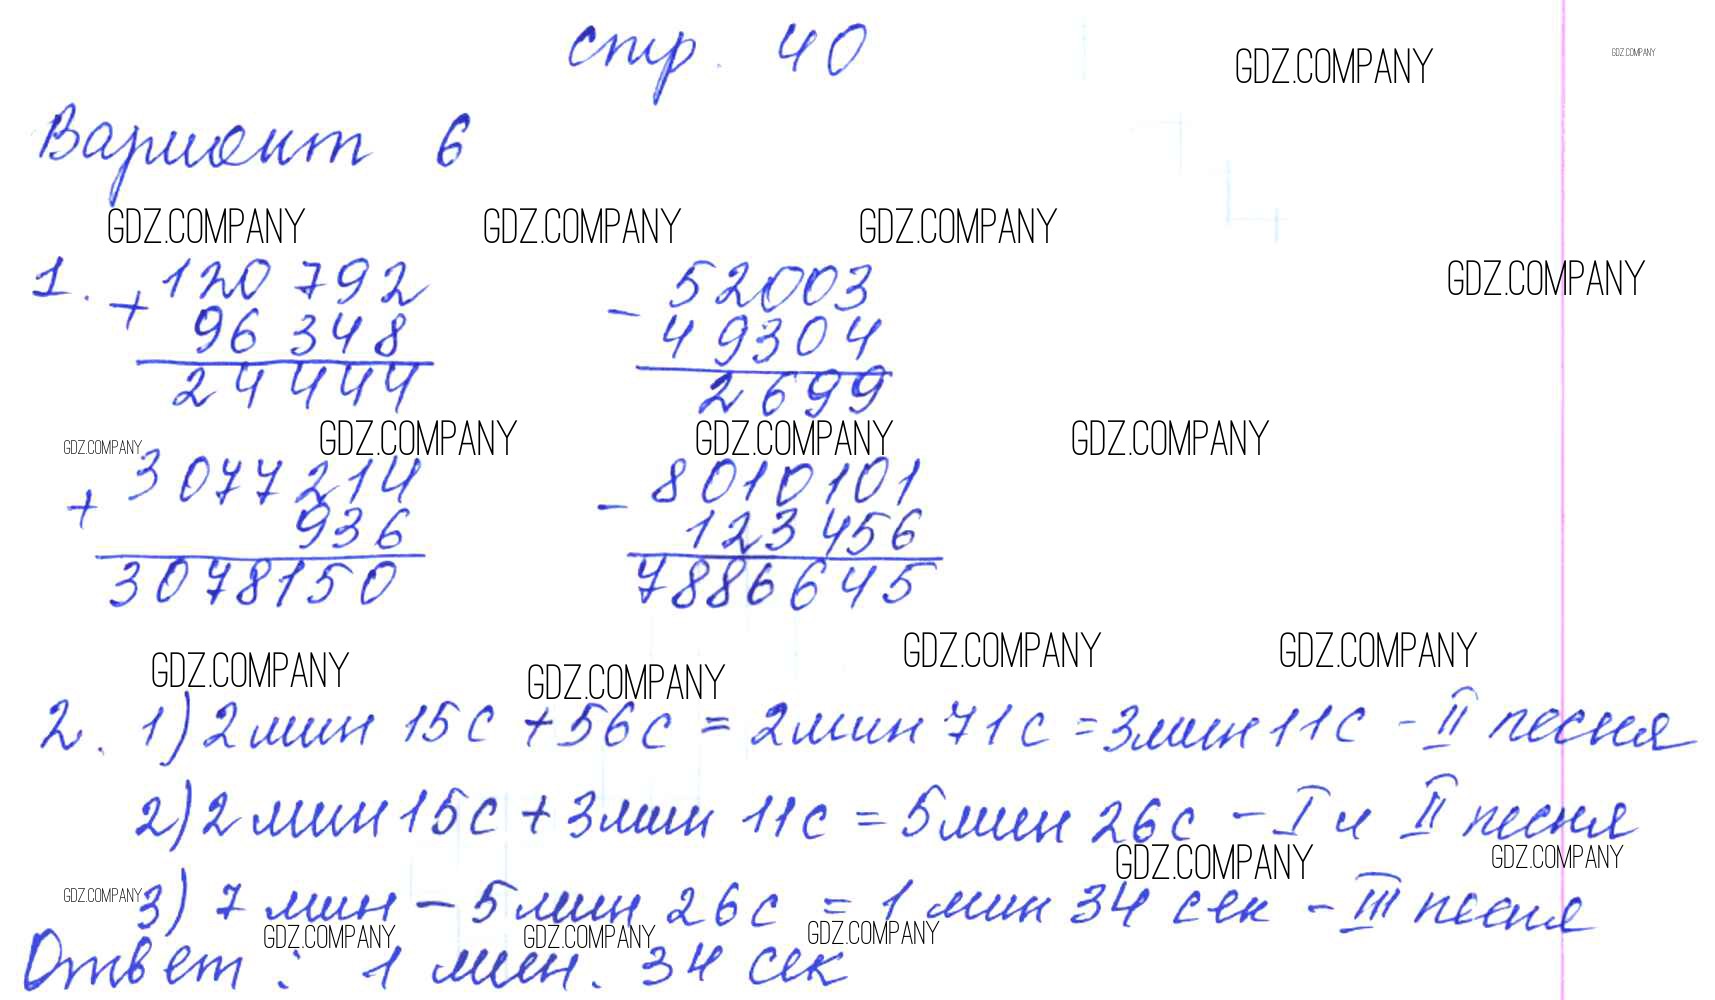 стр. 40
GDZ.COMPANY GDZ.COMPANY
Вариант 6
GDZ.COMPANY GDZ.COMPANY GDZ.COMPANY
GDZ.COMPANY
1. + 120 792 - 52003
96 348 49304
24 444 2699
GDZ.COMPANY GDZ.COMPANY GDZ.COMPANY GDZ.COMPANY
+ 3077214 - 8010101
936 123 456
3078150 7886645
GDZ.COMPANY GDZ.COMPANY GDZ.COMPANY GDZ.COMPANY
2. 1) 2 мин 15 с + 56 с = 2 мин 71 с = 3 мин 11 с - II песня
2) 2 мин 15 с + 3 мин 11 с = 5 мин 26 с - I и II песня
GDZ.COMPANY GDZ.COMPANY
GDZ.COMPANY
3) 7 мин - 5 мин 26 с = 1 мин 34 сек - III песня
GDZ.COMPANY GDZ.COMPANY GDZ.COMPANY
Ответ: 1 мин. 34 сек